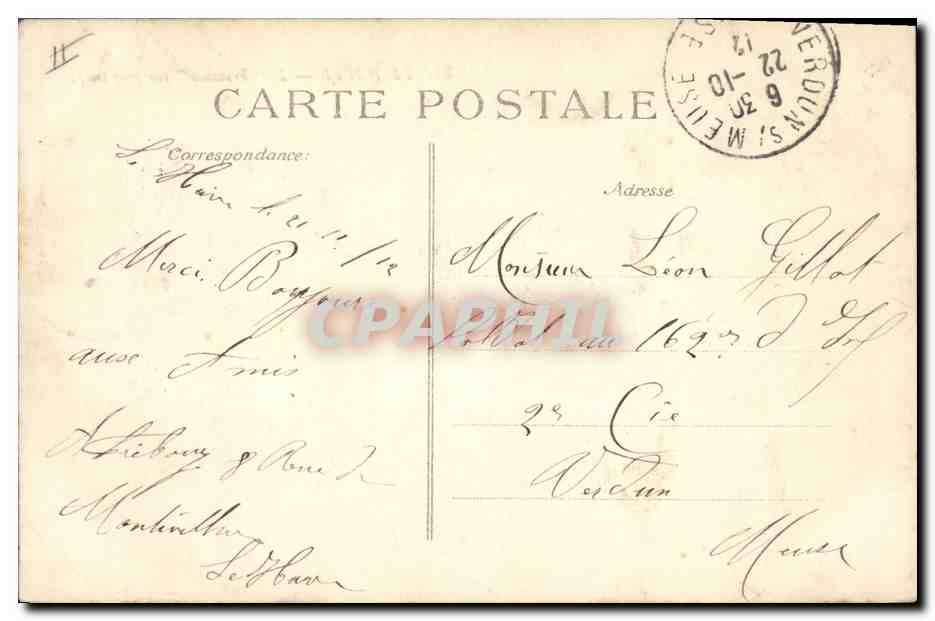 CARTE POSTALE
VERDUN S/ MEUSE
6 30
22 -10
12
Correspondance:
Le Havre le 21 10/12
Merci Bonjour
aux Amis
8 Rue de
Montivilliers
Le Havre
Adresse
Monsieur Léon Gillot
Soldat au 162er d Inf
2e Cie
Verdun
Meuse
CPAPHIL